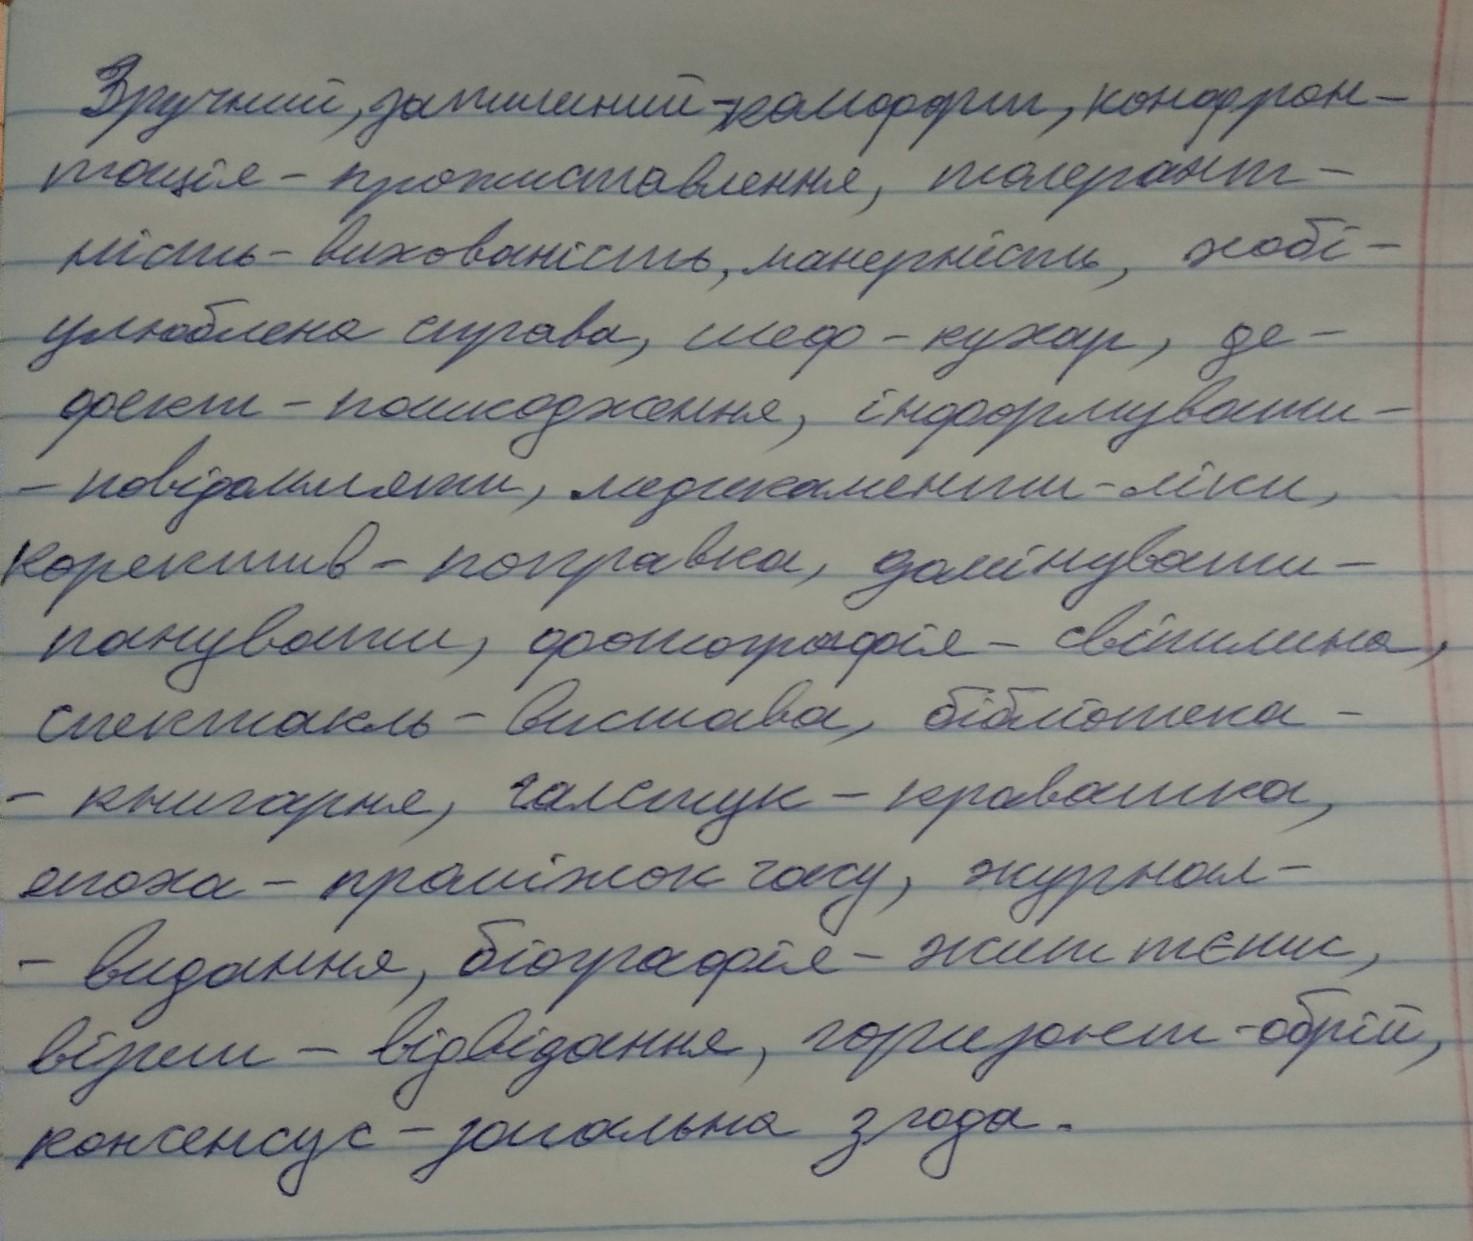 Зручний, затишний-комфорт, конфрон-
тація - протиставлення, толерант-
ність - вихованість, манерність, хобі -
улюблена справа, шеф - кухар, де-
фект - пошкодження, інформувати -
- повідомляти, медикаменти - ліки,
коректив - поправка, домінувати -
панувати, фотографія - світлина,
спектакль - вистава, бібліотека -
- книгарня, галстук - краватка,
епоха - проміжок часу, журнал -
- видання, біографія - життєпис,
візит - відвідання, горизонт - обрій,
консенсус - загальна згода.